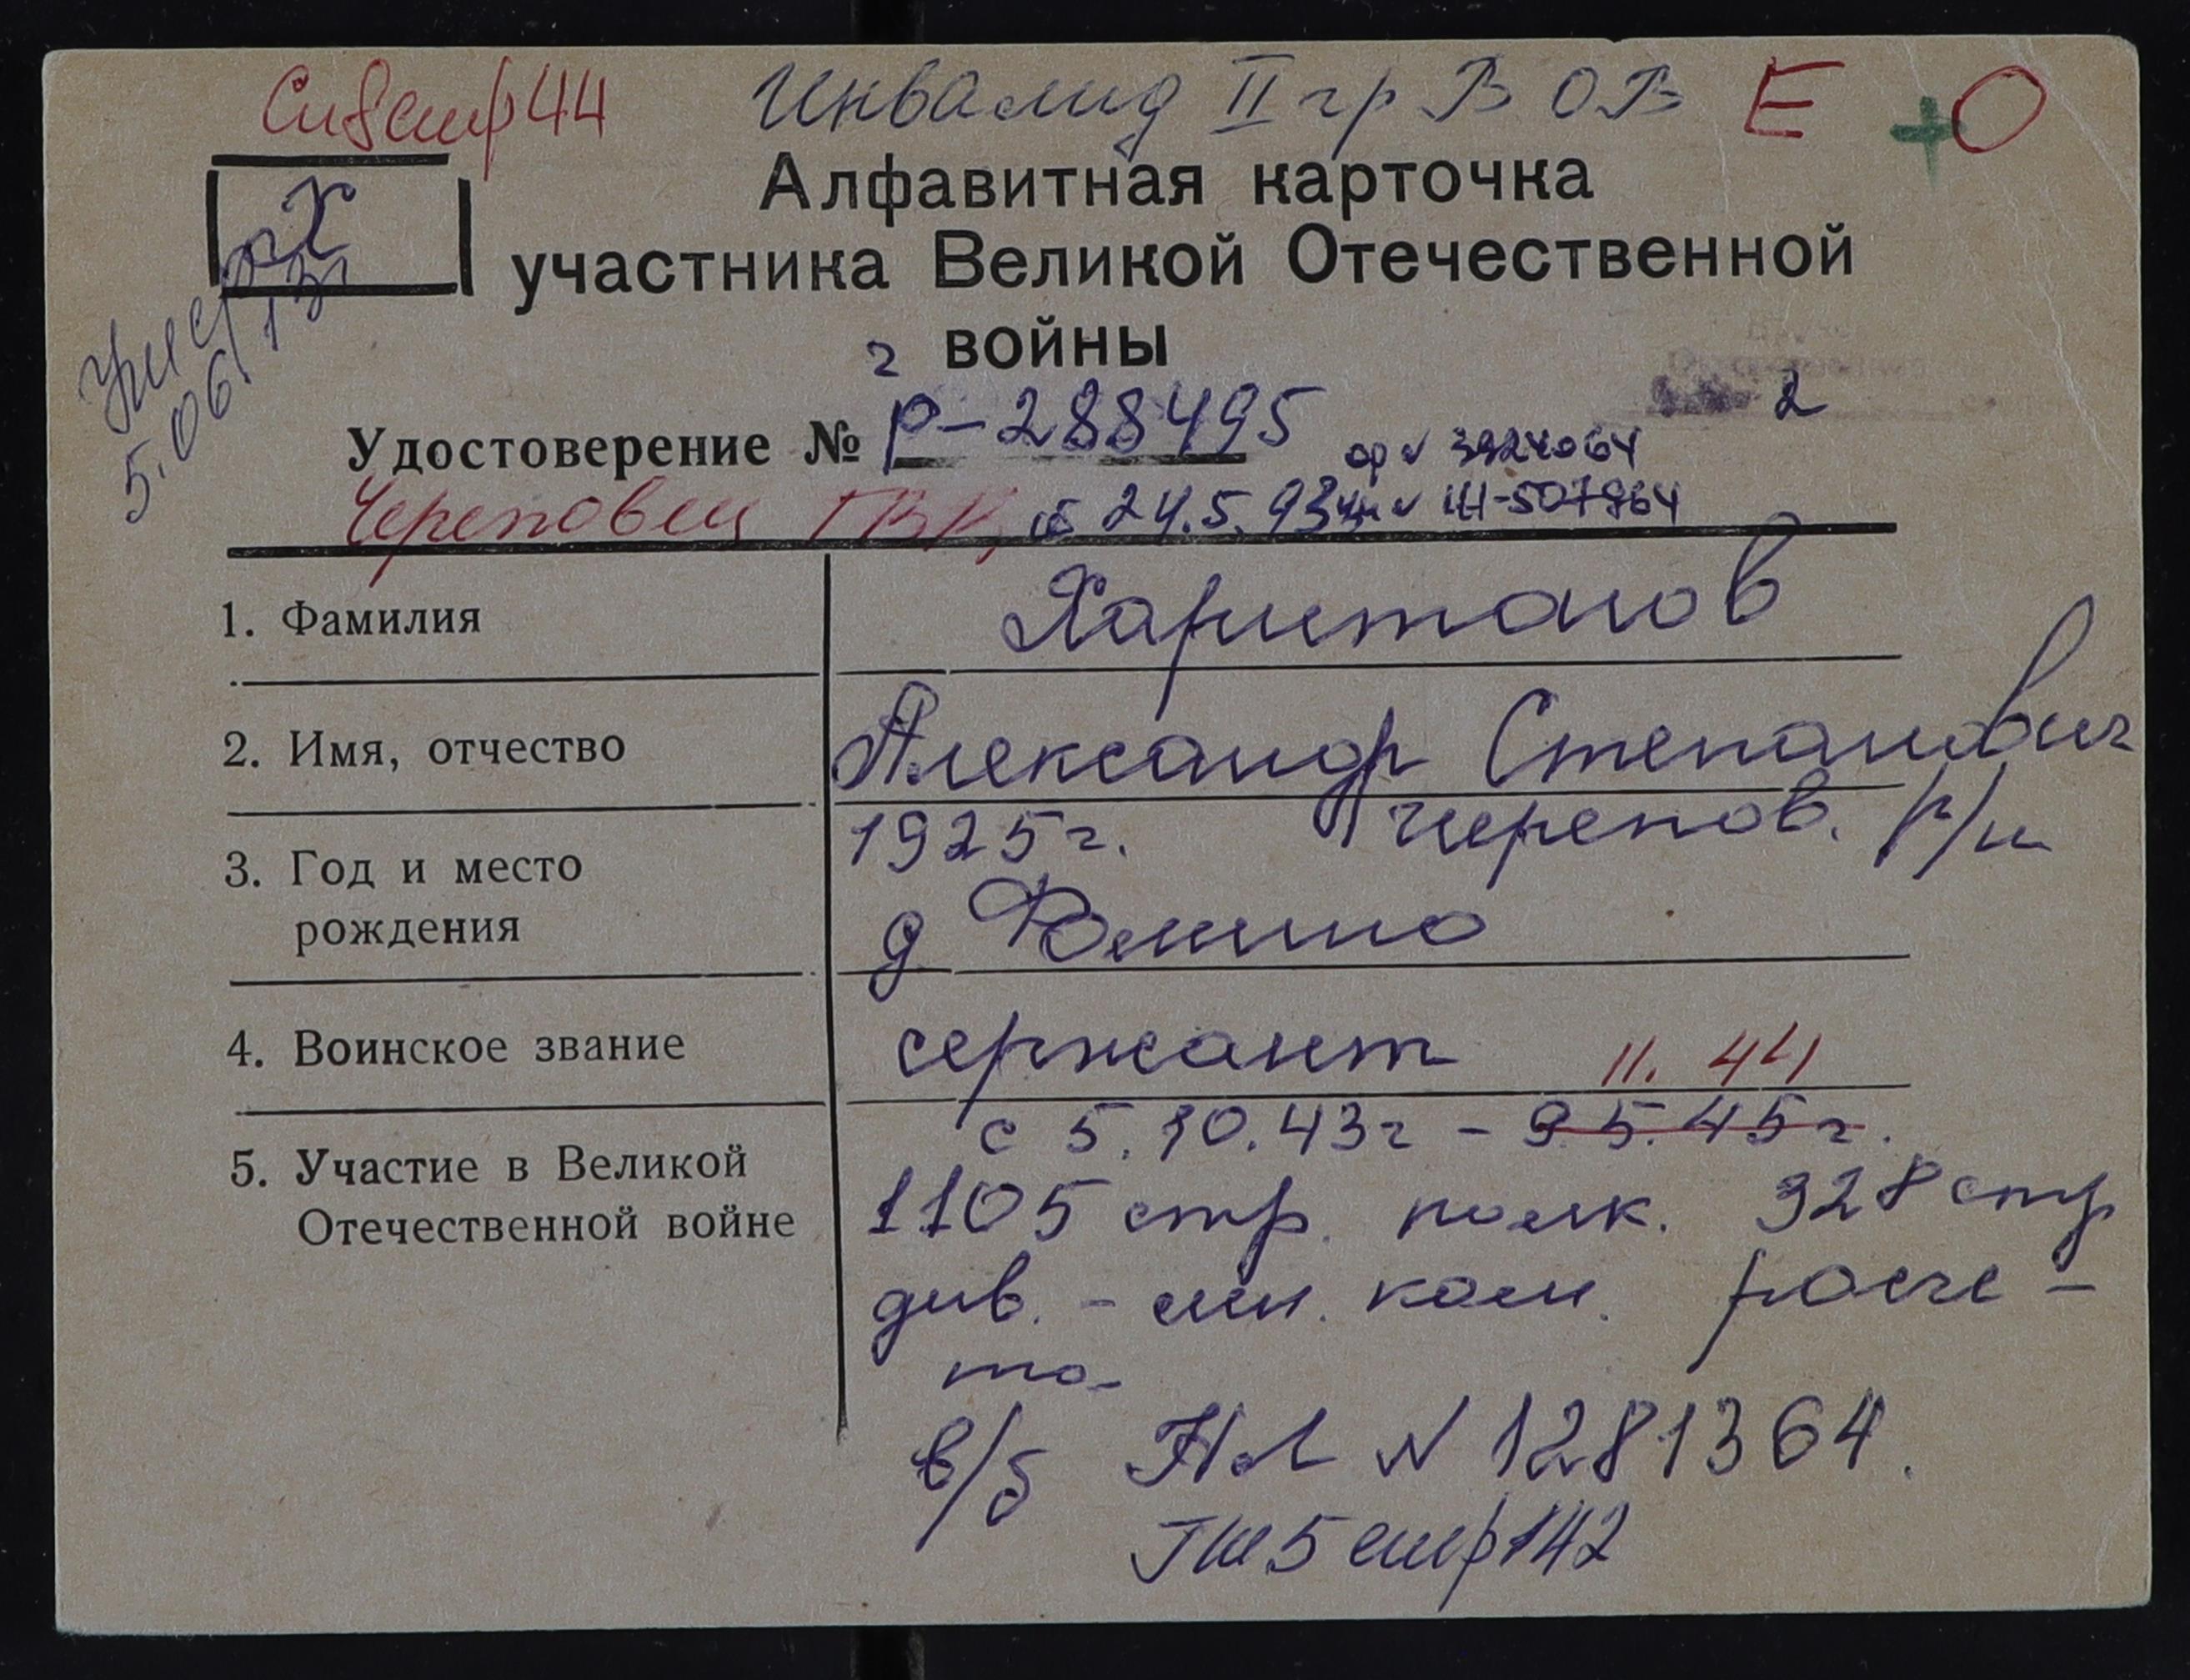 Инвалид II гр ВОВ Е + О
стр 44
Х
Алфавитная карточка
участника Великой Отечественной
войны
г
умер
5.06/13г
2
Удостоверение № Р-288495
ор № 3924064
Череповец ГВК, от 24.5.93г
1. Фамилия
Харитонов
2. Имя, отчество
Александр Степанович
3. Год и место
рождения
1925г. Черепов. р/н
д Фомино
4. Воинское звание
сержант 11.44
5. Участие в Великой
Отечественной войне
с 5.10.43г - 9.5.45г.
1105 стр. полк. 328 стр
див. - мл. ком. расче-
та
в/б НЛ N 1281364.
ТШ 5 стр 142